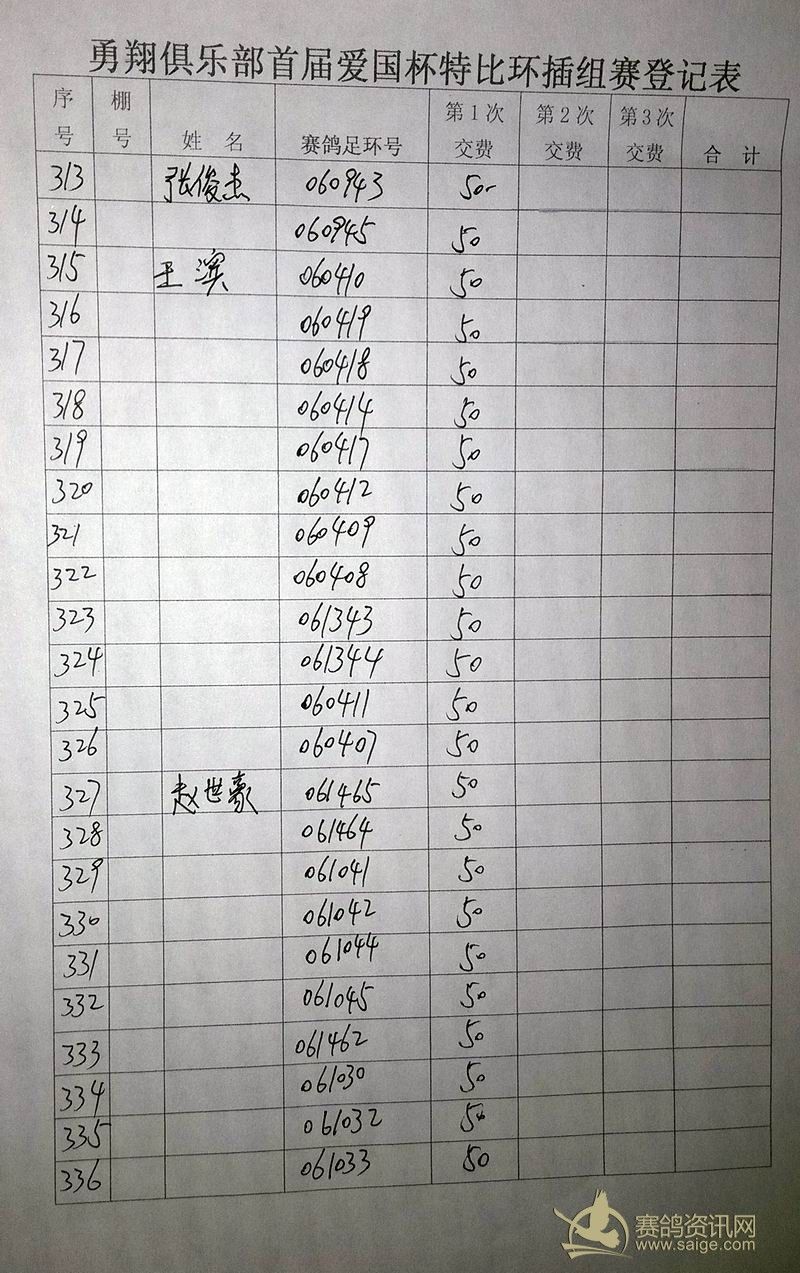 勇翔俱乐部首届爱国杯特比环插组赛登记表
序号 棚号 姓 名 赛鸽足环号 第1次交费 第2次交费 第3次交费 合 计
313 张俊杰 060943 50-
314 060945 50
315 王滨 060410 50
316 060419 50
317 060418 50
318 060414 50
319 060417 50
320 060412 50
321 060409 50
322 060408 50
323 061343 50
324 061344 50
325 060411 50
326 060407 50
327 赵世豪 061465 50
328 061464 50
329 061041 50
330 061042 50
331 061044 50
332 061045 50
333 061462 50
334 061030 50
335 061032 50
336 061033 50
赛鸽资讯网
www.saige.com